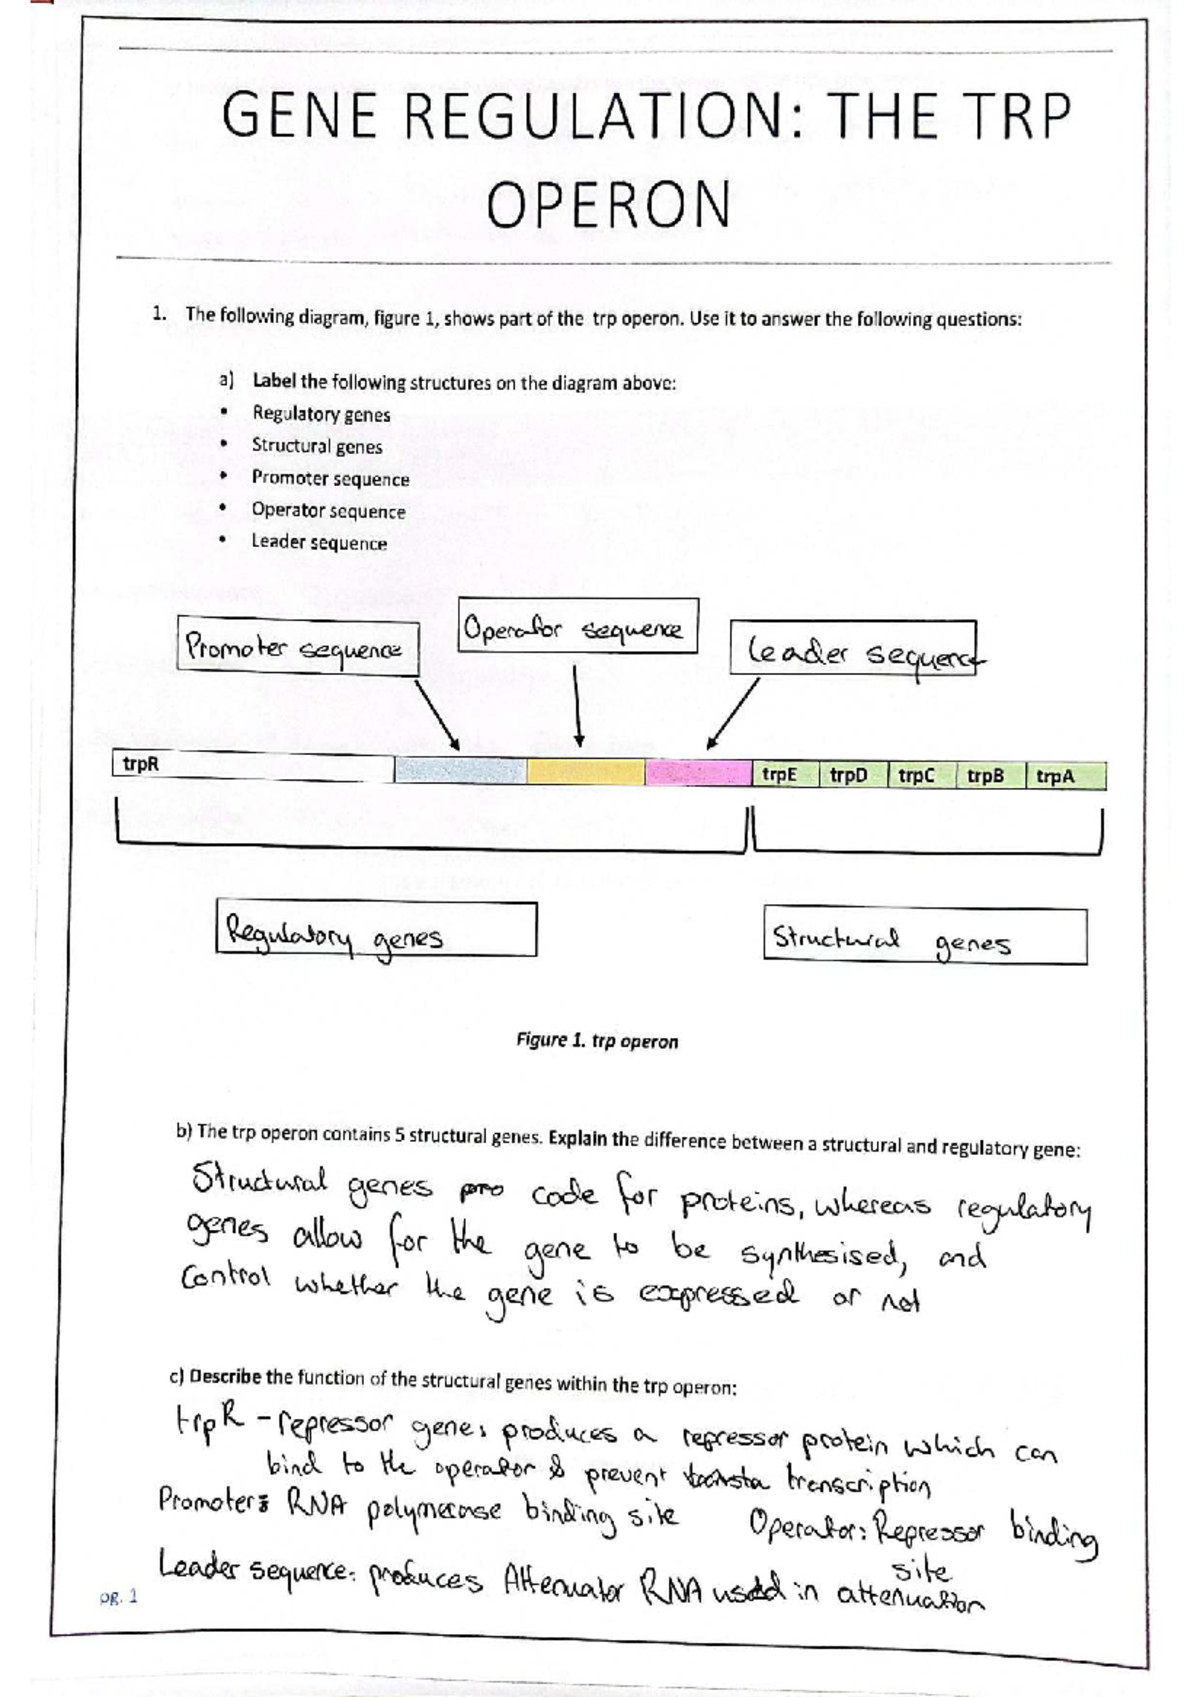 GENE REGULATION: THE TRP
OPERON
1. The following diagram, figure 1, shows part of the trp operon. Use it to answer the following questions:
a) Label the following structures on the diagram above:
• Regulatory genes
• Structural genes
• Promoter sequence
• Operator sequence
• Leader sequence
Promoter sequence
Operator sequence
Leader sequence
trpR
trpE trpD trpC trpB trpA
Regulatory genes
Structural genes
Figure 1. trp operon
b) The trp operon contains 5 structural genes. Explain the difference between a structural and regulatory gene:
Structural genes pro code for proteins, whereas regulatory
genes allow for the gene to be synthesised, and
control whether the gene is expressed or not
c) Describe the function of the structural genes within the trp operon:
trpR - repressor gene: produces a repressor protein which can
bind to the operator & prevent transcription
Promoter: RNA polymerase binding site
Operator: Repressor binding
site
Leader sequence: produces Attenuator RNA used in attenuation
pg. 1